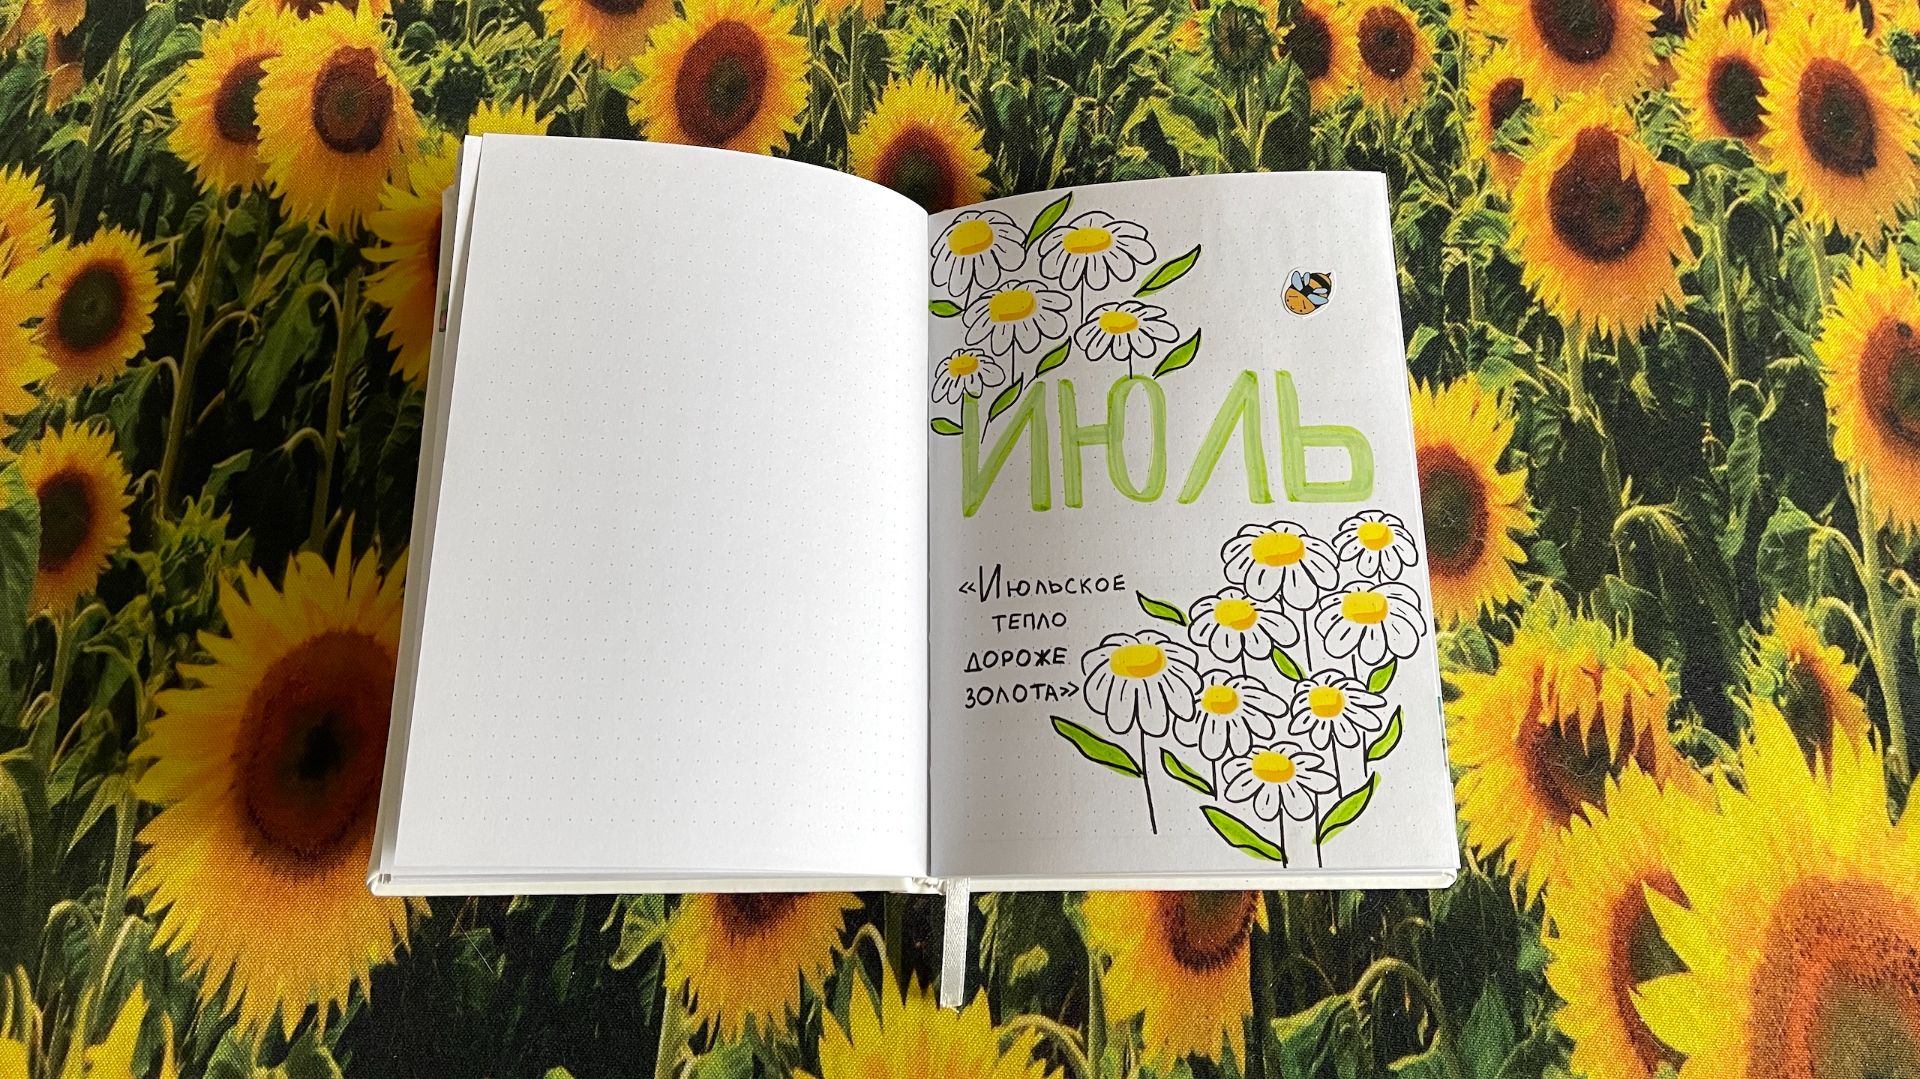 ИЮЛЬ
«Июльское
тепло
дороже
золота»